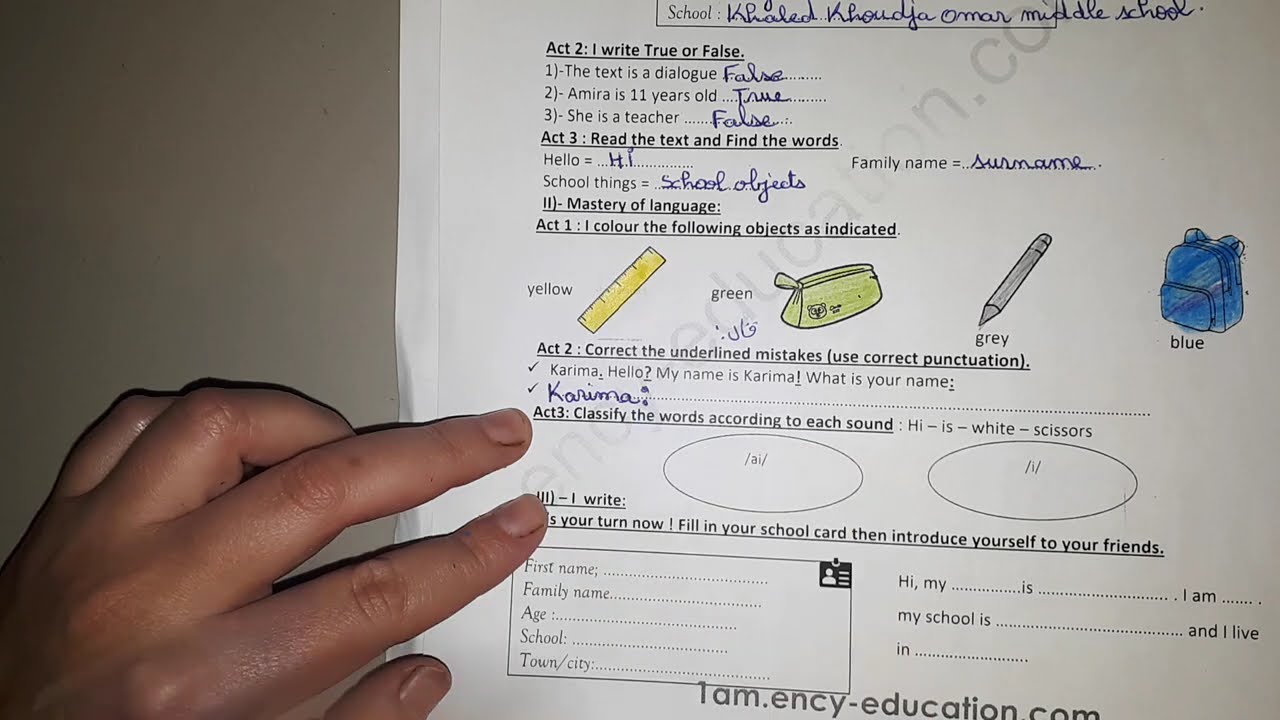 School : Khaled Khoudja omar middle school.
Act 2: I write True or False.
1)-The text is a dialogue False.........
2)- Amira is 11 years old ...True.........
3)- She is a teacher ......False..:.
Act 3 : Read the text and Find the words.
Hello = ...Hi.............. Family name =..surname..
School things = ..school objects
II)- Mastery of language:
Act 1 : I colour the following objects as indicated.
yellow green grey blue
قال:
Act 2 : Correct the underlined mistakes (use correct punctuation).
✓ Karima. Hello? My name is Karima! What is your name:
✓ Karima:..............................................................................
Act3: Classify the words according to each sound : Hi – is – white – scissors
/ai/ /i/
III) – I write:
s your turn now ! Fill in your school card then introduce yourself to your friends.
First name; .................................
Family name..............................
Age :....................................
School: ...............................
Town/city:...................................
Hi, my ..............is .......................... . I am ....... .
my school is ..................................... and I live
in .......................
1am.ency-education.com
ency-education.co